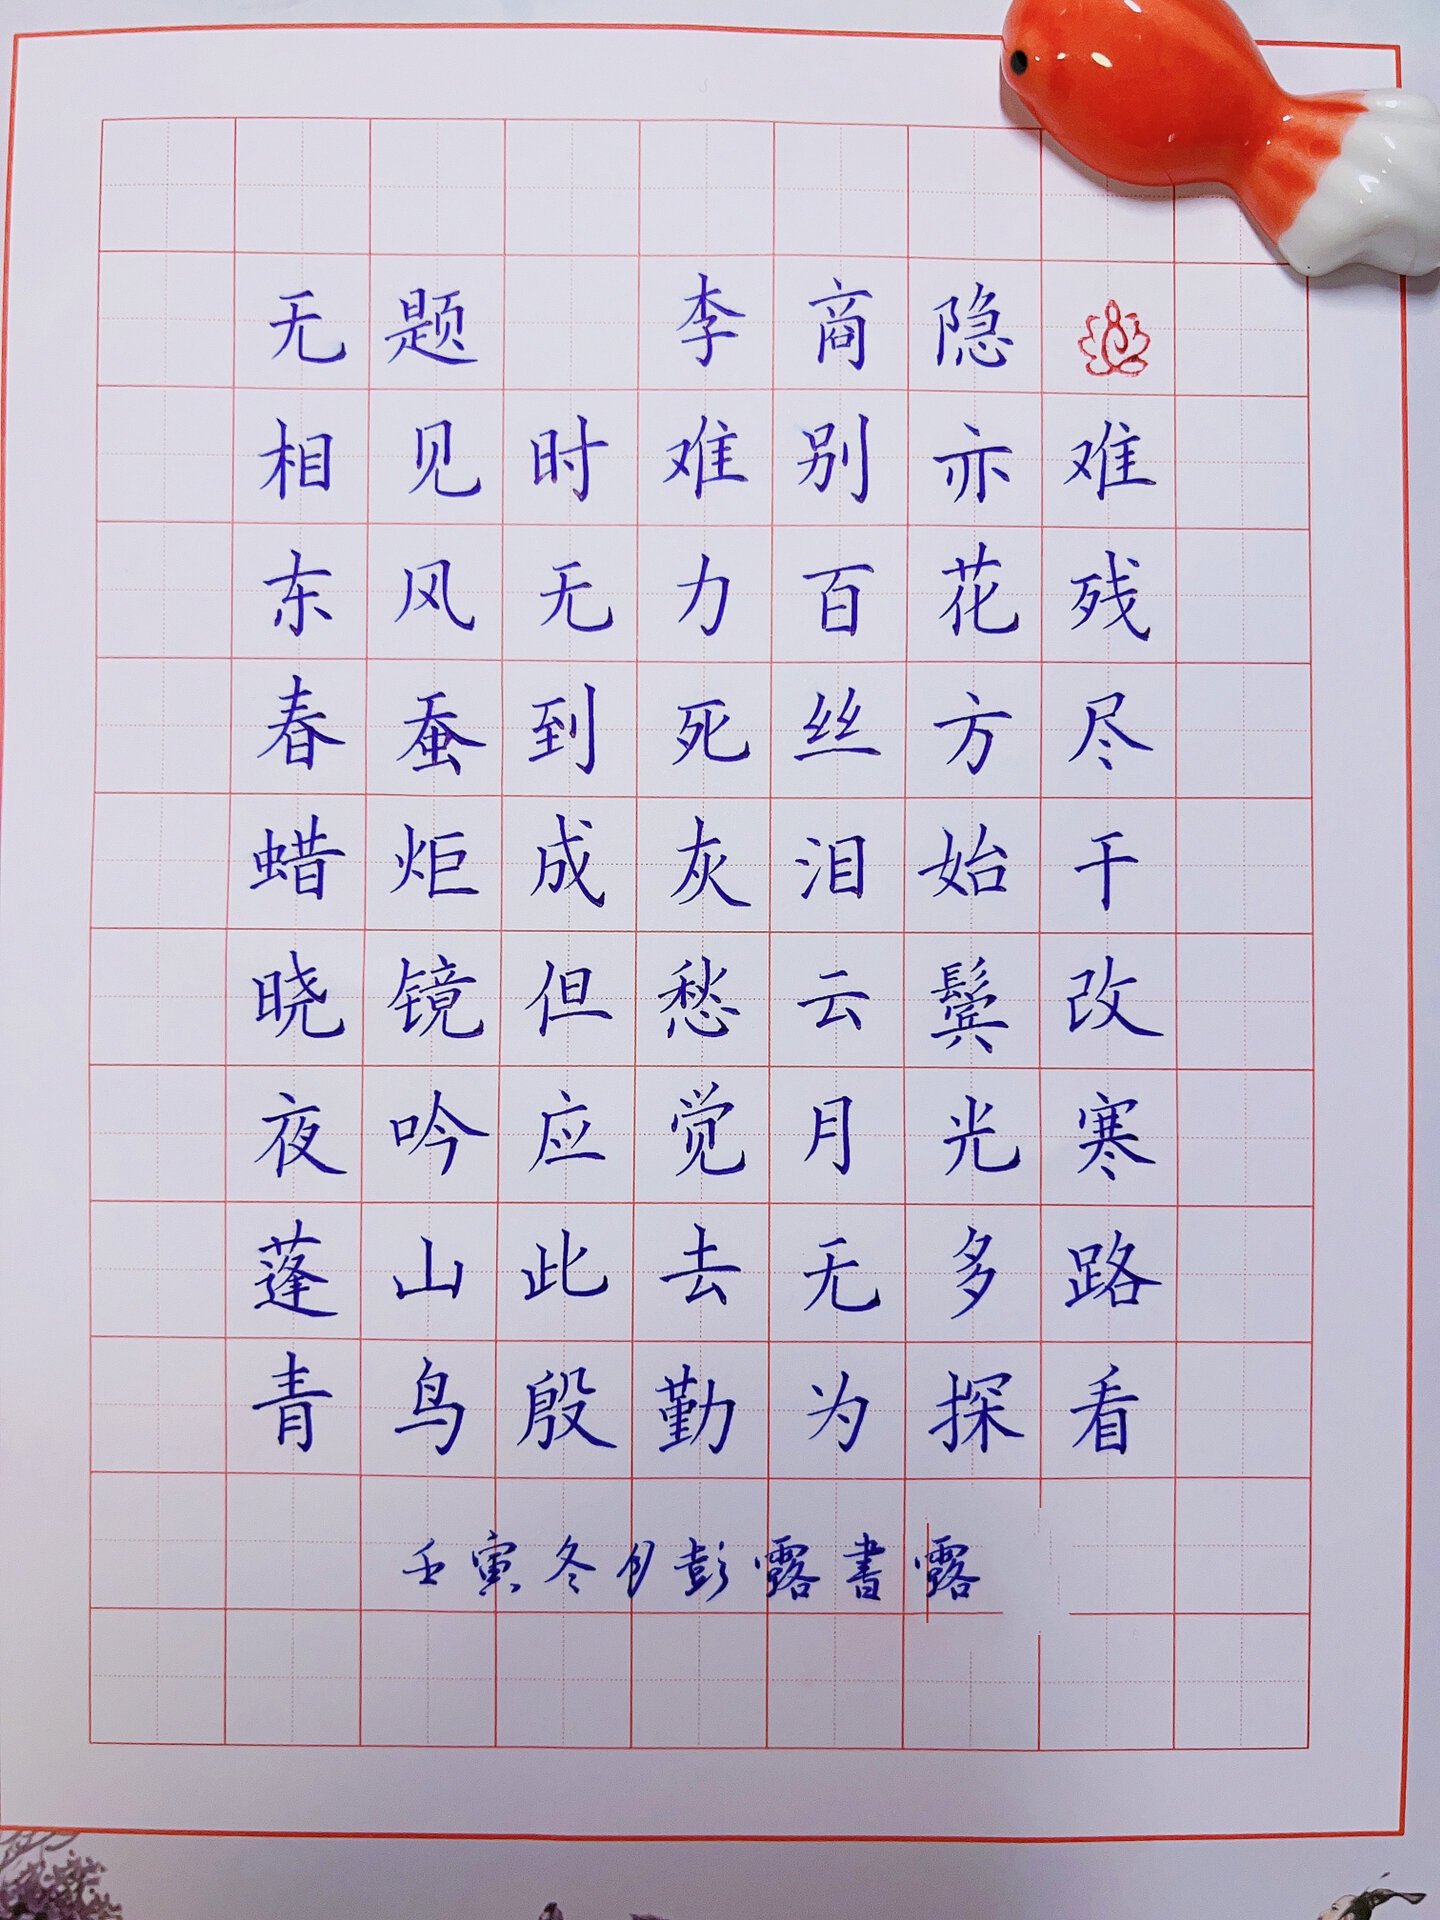 无题 李商隐
相见时难别亦难
东风无力百花残
春蚕到死丝方尽
蜡炬成灰泪始干
晓镜但愁云鬓改
夜吟应觉月光寒
蓬山此去无多路
青鸟殷勤为探看
壬寅冬月彭露書露